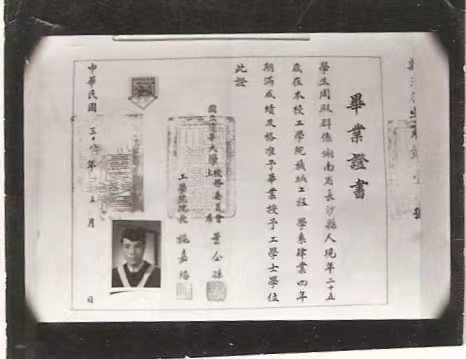 畢業證書
學生周殿群係湖南省長沙縣人現年二十五
歲在本校工學院機械工程學系肄業四年
期滿成績及格准予畢業授予工學士學位
此證
國立清華大學校務委員會主席 葉企孫
工學院院長 施嘉煬
中華民國三十 年 五月 日